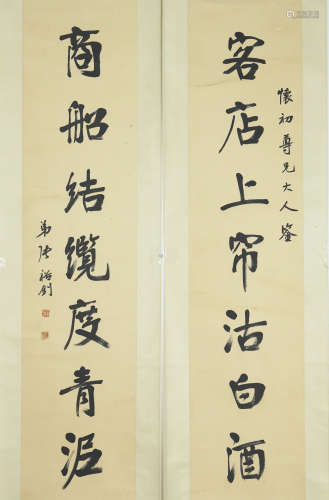 客店上帘沽白酒
懷初尊兄大人鉴
商船结缆度青泥
弟张裕钊